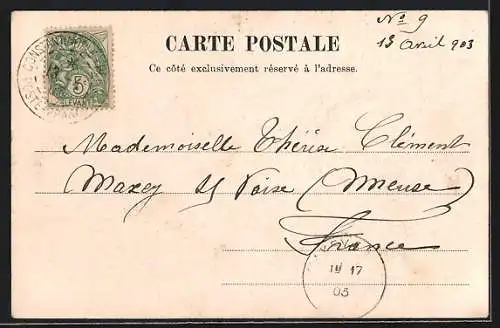 No 9
13 avril 903
CARTE POSTALE
Ce côté exclusivement réservé à l'adresse.
5
LEVANT
Mademoiselle Thérèse Clément
Maxey s/ Vaise (Meuse)
France
17
03